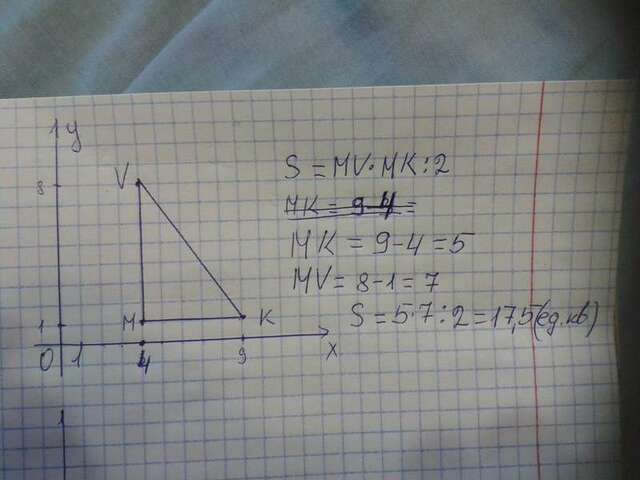 y
V
8
S = MV·MK:2
MK = 9-4 =
MK = 9-4 = 5
MV = 8-1 = 7
S = 5·7:2 = 17,5 (ед.кв)
1 M K
0 1 4 9 x